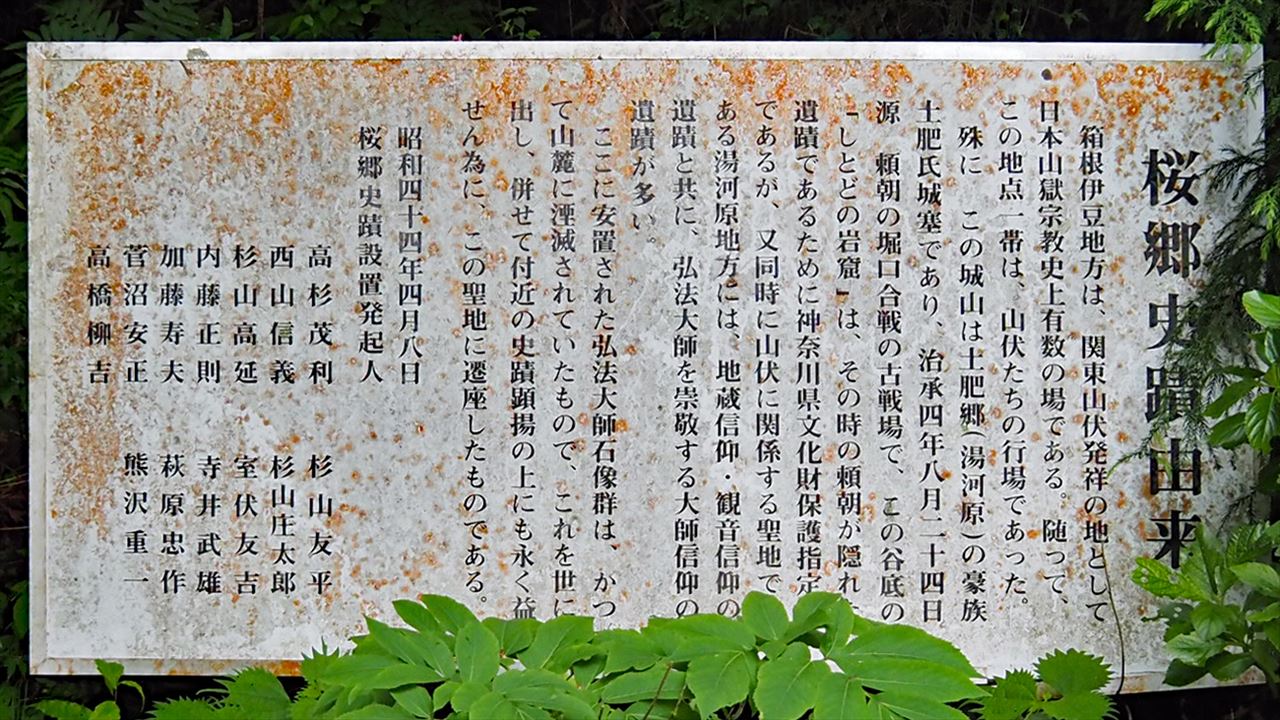 桜郷史蹟由来
箱根伊豆地方は、関東山伏発祥の地として
日本山獄宗教史上有数の場である。随って、
この地点一帯は、山伏たちの行場であった。
殊に この城山は土肥郷(湯河原)の豪族
土肥氏城塞であり、治承四年八月二十四日
源 頼朝の堀口合戦の古戦場で、この谷底の
「しとどの岩窟」は、その時の頼朝が隠れた
遺蹟であるために神奈川県文化財保護指定
であるが、又同時に山伏に関係する聖地で
ある湯河原地方には、地蔵信仰・観音信仰の
遺蹟と共に、弘法大師を崇敬する大師信仰の
遺蹟が多い。
ここに安置された弘法大師石像群は、かつ
て山麓に湮滅されていたもので、これを世に
出し、併せて付近の史蹟顕揚の上にも永く益
せん為に、この聖地に遷座したものである。
昭和四十四年四月八日
桜郷史蹟設置発起人
高杉茂利 杉山友平
西山信義 杉山庄太郎
杉山高延 室伏友吉
内藤正則 寺井武雄
加藤寿夫 萩原忠作
菅沼安正 熊沢重一
高橋柳吉